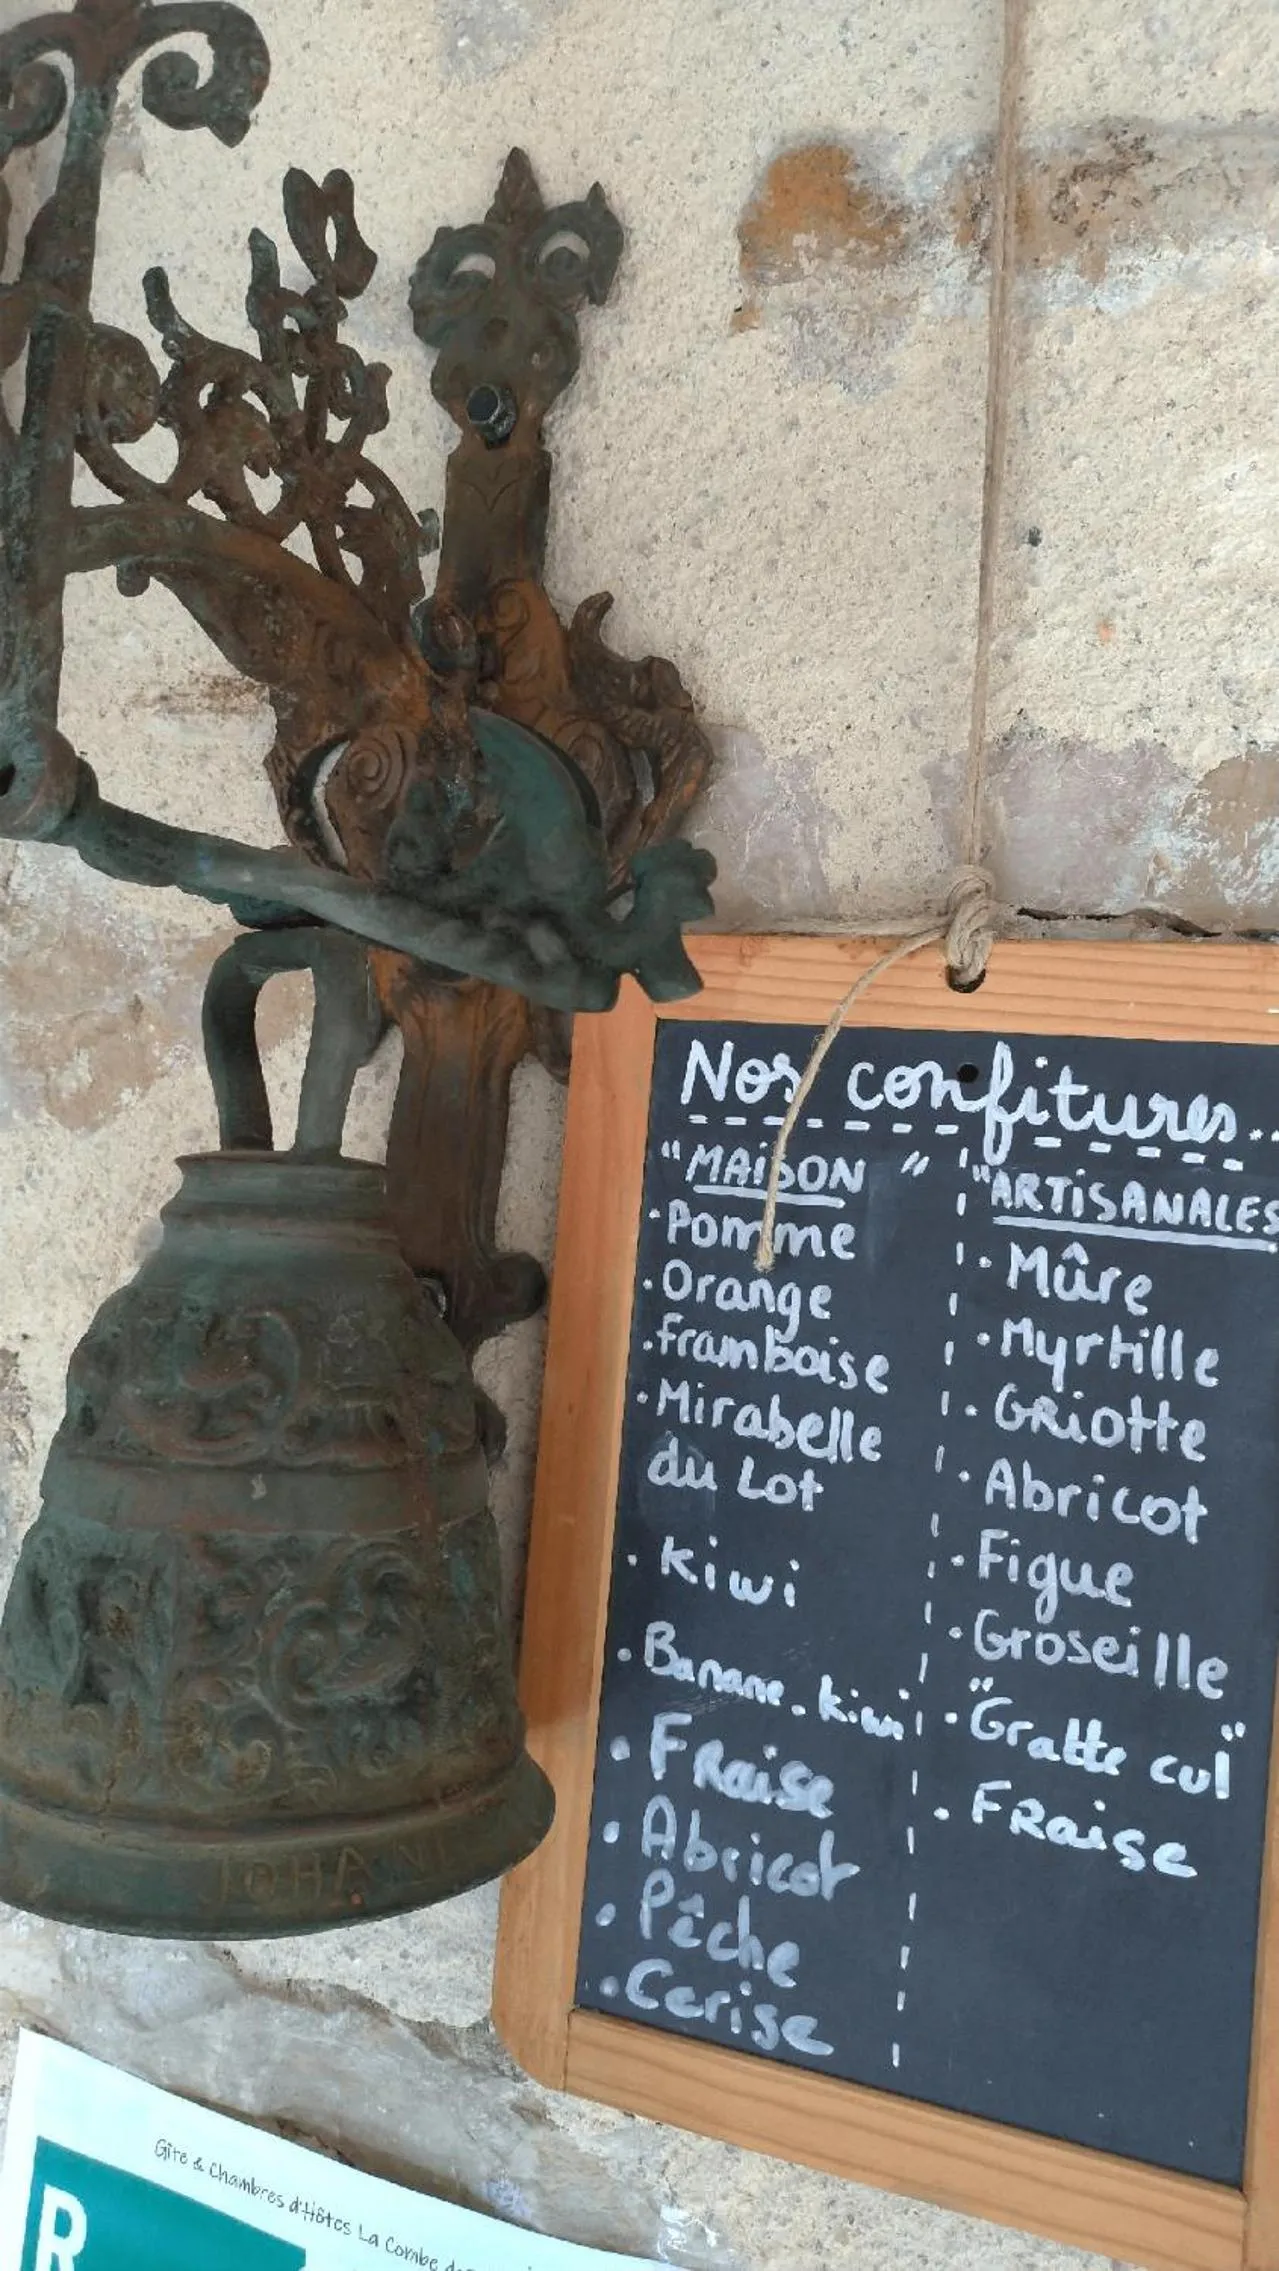 Nos confitures...
"MAISON"
• Pomme
• Orange
• framboise
• Mirabelle
du Lot
• Kiwi
• Banane. kiwi
• FRaise
• Abricot
• Pêche
• Cerise
"ARTISANALES
• Mûre
• Myrtille
• GRiotte
• Abricot
• Figue
• Groseille
• "Gratte cul"
• FRaise
JOHAN
Gîte & Chambres d'Hôtes La Combe
R